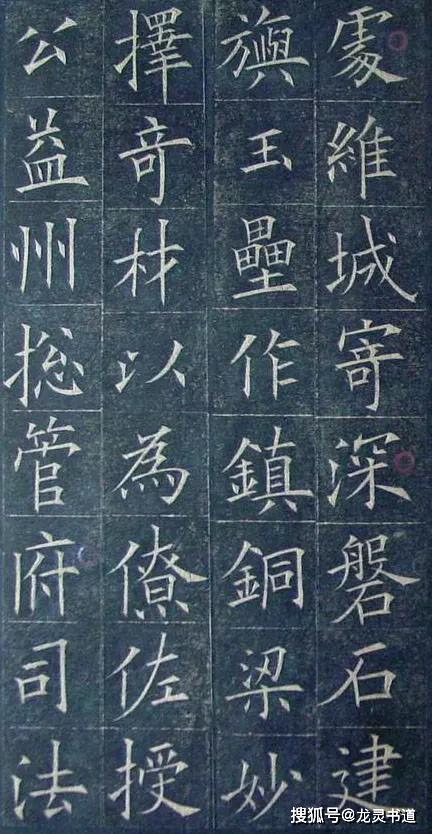 處維城寄深磐石建
旟玉壘作鎮銅梁妙
擇竒材以為僚佐授
公益州揔管府司法
搜狐号@龙灵书道